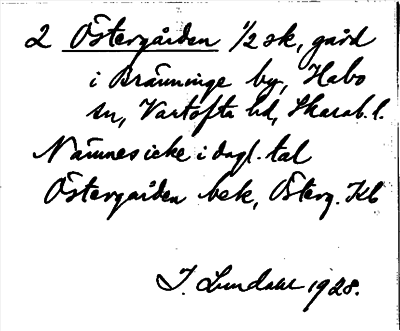 2 Östergården 1/2 sk, gård
i Bränninge by, Habo
sn, Vartofta hd, Skarab. l.
Nämnes icke i dagl. tal
Östergården bek, Österg. Kb
J. Lundahl 1928.